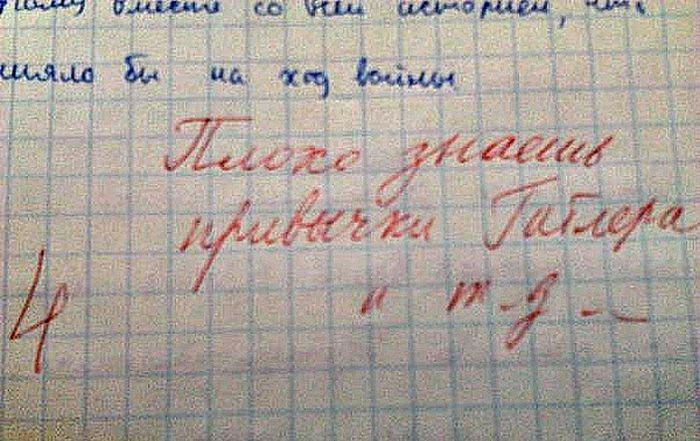 вместе со всей историей,
лияло бы на ход войны
Плохо знаешь
привычки Гитлера
и т.д.
4